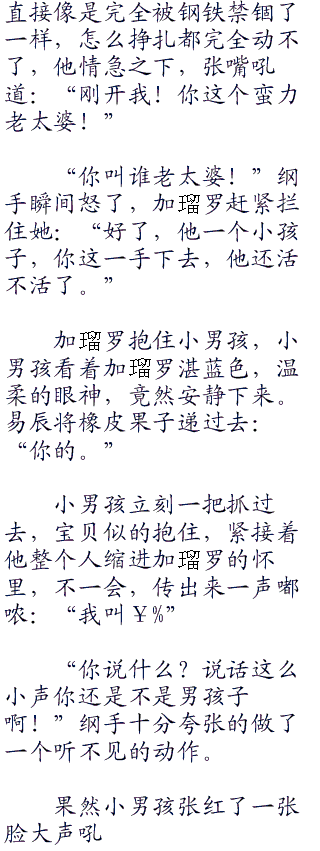 直接像是完全被钢铁禁锢了
一样，怎么挣扎都完全动不
了，他情急之下，张嘴吼
道：“刚开我！你这个蛮力
老太婆！”
“你叫谁老太婆！”纲
手瞬间怒了，加瑠罗赶紧拦
住她：“好了，他一个小孩
子，你这一手下去，他还活
不活了。”
加瑠罗抱住小男孩，小
男孩看着加瑠罗湛蓝色，温
柔的眼神，竟然安静下来。
易辰将橡皮果子递过去：
“你的。”
小男孩立刻一把抓过
去，宝贝似的抱住，紧接着
他整个人缩进加瑠罗的怀
里，不一会，传出来一声嘟
哝：“我叫￥%”
“你说什么？说话这么
小声你还是不是男孩子
啊！”纲手十分夸张的做了
一个听不见的动作。
果然小男孩张红了一张
脸大声吼